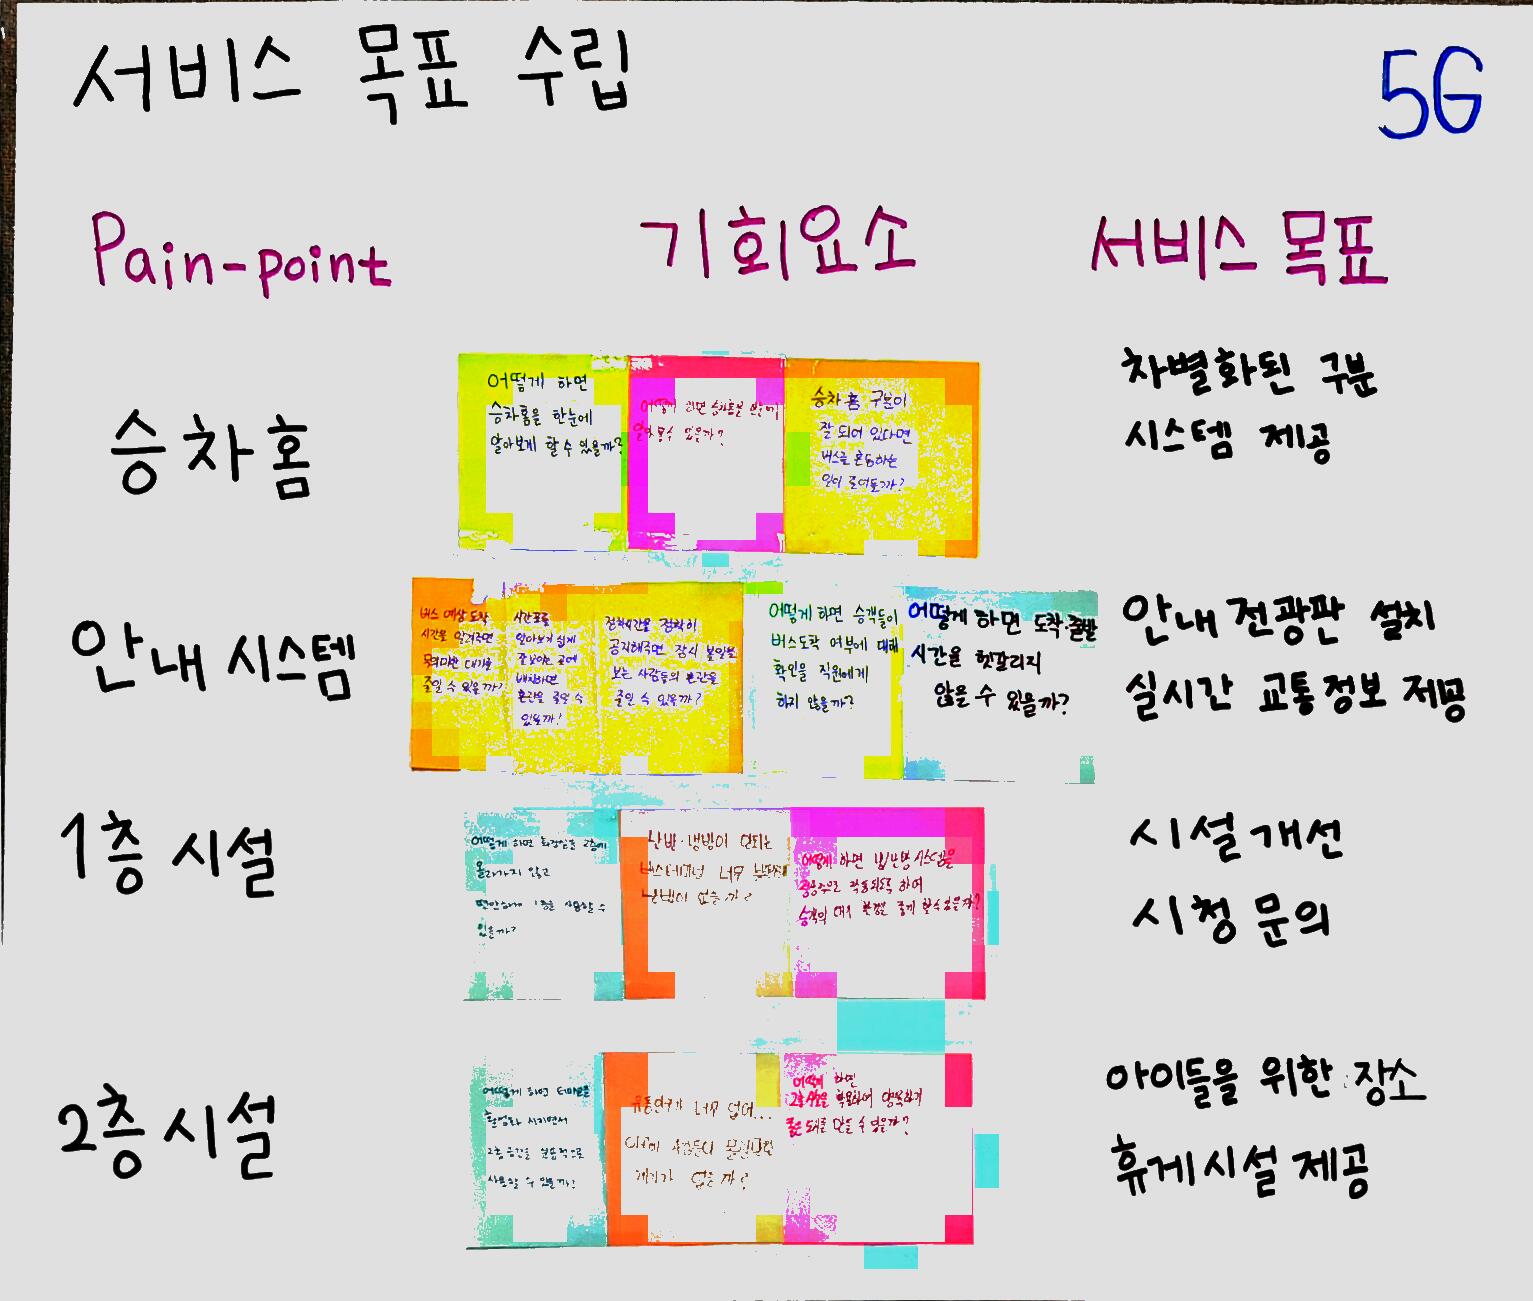 서비스 목표 수립
5G
Pain-point
기회요소
서비스 목표
승차홈
어떻게 하면
승차홈을 한눈에
알아보게 할 수 있을까?
어떻게 하면 승차홈을 한눈에
알아볼수 있을까?
승차홈 구분이
잘 되어 있다면
버스를 혼동하는
일이 줄어들까?
차별화된 구분
시스템 제공
안내 시스템
버스 예상 도착
시간을 알려주면
무의미한 대기를
줄일 수 있을까?
시간표를
알아보기 쉽게
눈높이
배치하면
혼란을 줄일 수
있을까?
정차시간을 정확히
공지해주면 잠시 볼일을
보는 사람들의 혼란을
줄일 수 있을까?
어떻게 하면 승객들이
버스도착 여부에 대해
확인을 직원에게
하지 않을까?
어떻게 하면 도착·출발
시간을 헷갈리지
않을 수 있을까?
안내 전광판 설치
실시간 교통정보 제공
1층 시설
어떻게 하면 화장실을 2층에
올라가지 않고
편안하게 1층을 사용할 수
있을까?
난방·냉방이 안되는
버스터미널 너무
방법이 없을까?
어떻게 하면 냉/난방 시스템을
작동되도록 하여
승객의 대기 환경을 좋게 할수있을까?
시설개선
시청 문의
2층 시설
어떻게 하면 터미널을
활성화 시키면서
2층 공간을 효율적으로
사용할 수 있을까?
유동인구가 너무 없어...
계기가 없을까?
어떻게 하면
2층시설을 활용하여
만들 수 있을까?
아이들을 위한 장소
휴게시설 제공